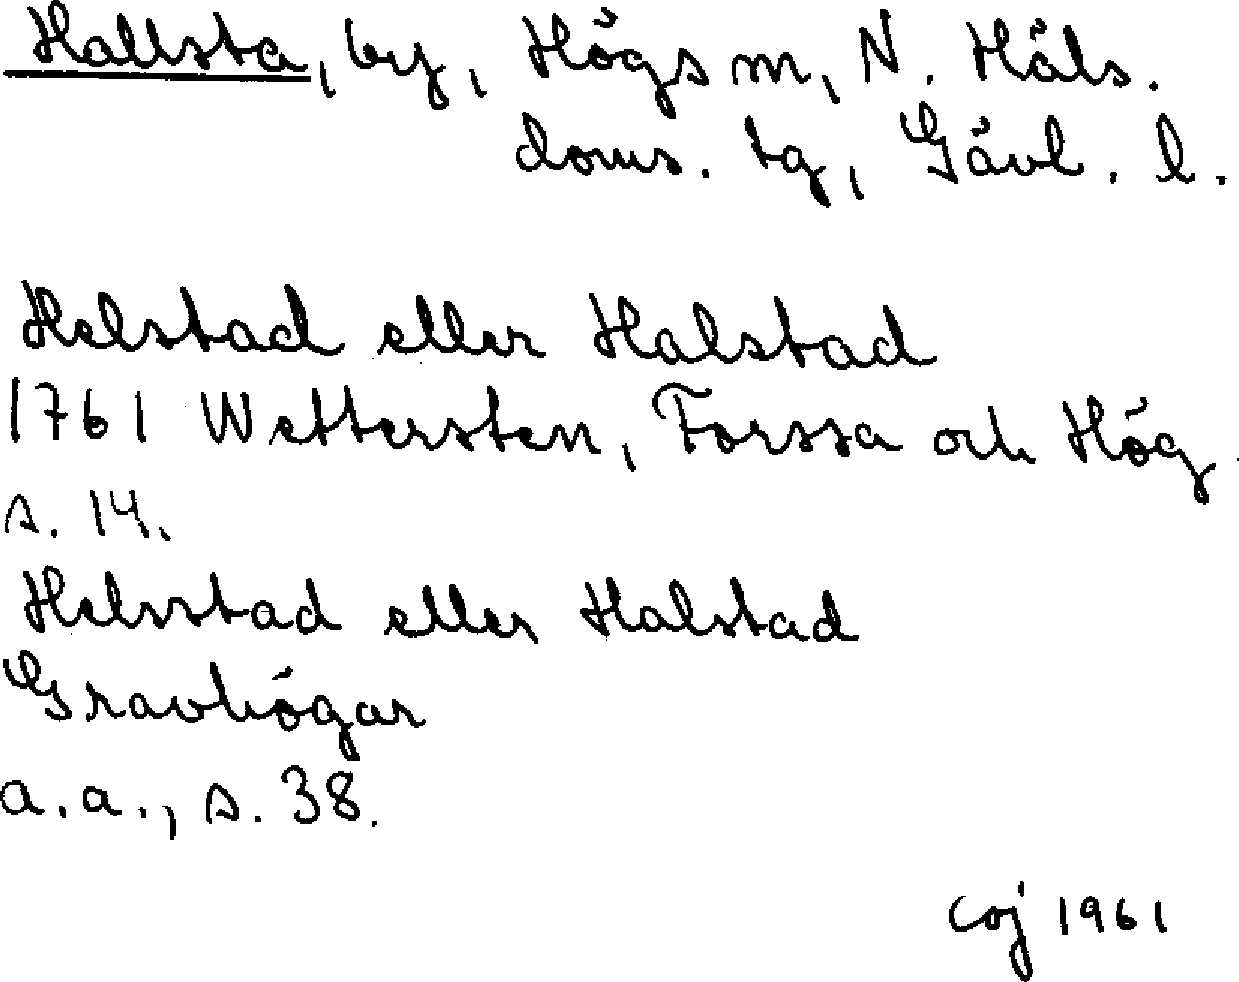 Hallsta, by, Högs sn, N. Häls.
doms. tg, Gävl. l.
Helstad eller Halstad
1761 Wettersten, Forssa och Hög
s. 14.
Helsstad eller Halstad
Gravhögar
a.a., s. 38.
coj 1961